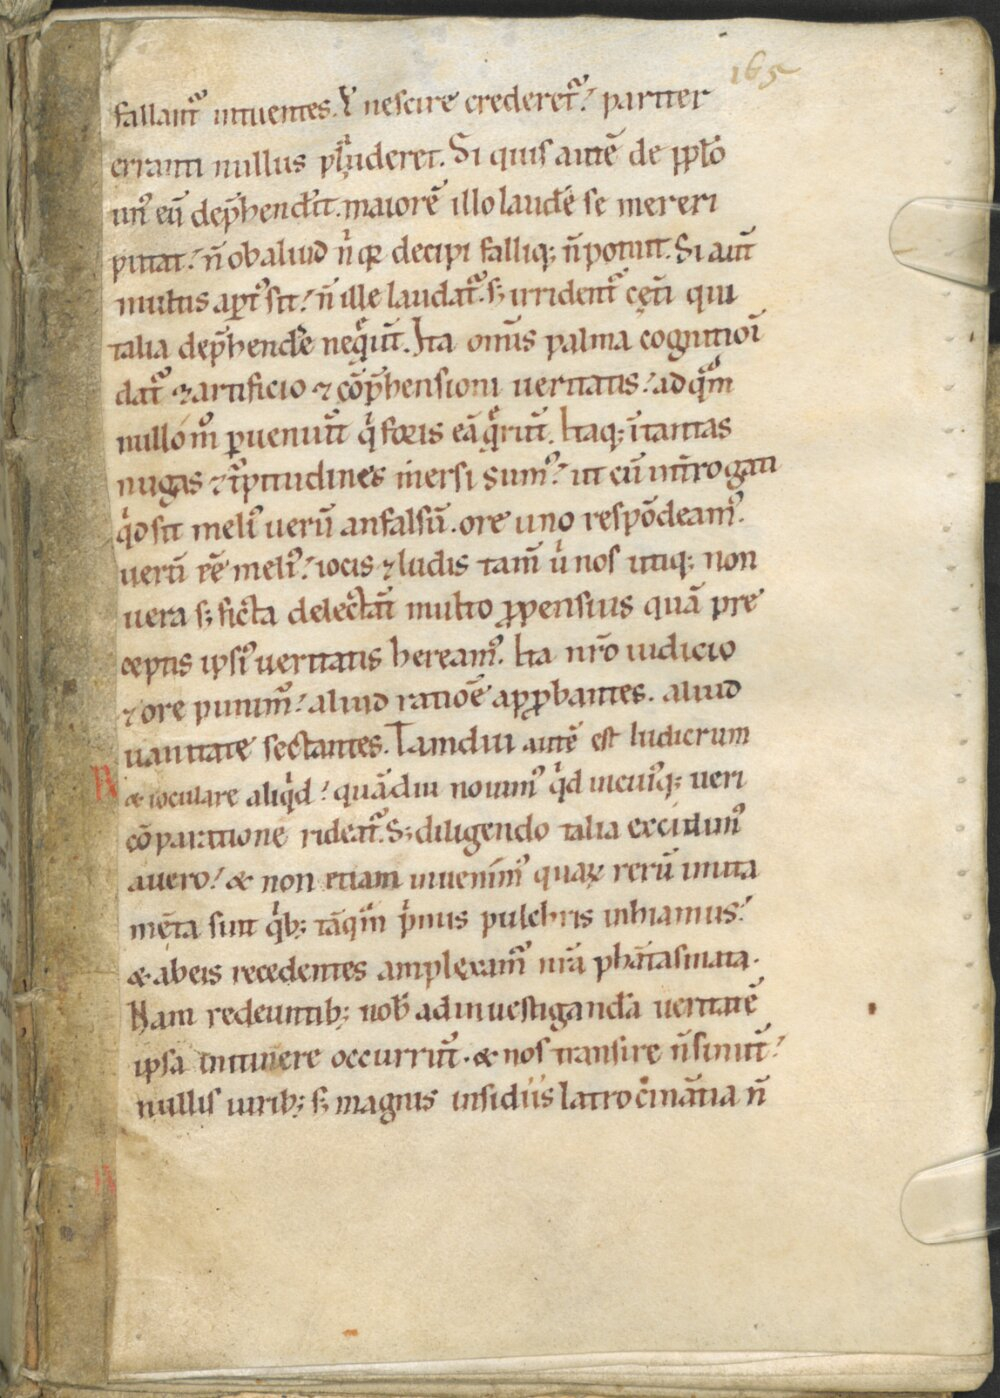 165
fallant᷑ intuentes. Ɣ nescire crederet᷑? pariter
erranti nullus plauderet. Si quis autē de pp̄lo
un᷒ eū dep̄hend̄it. maiorē illo laudē se mereri
putat? n̄ ob aliud nͥ qꝛ decipi falliq; n̄ potuit. Si aut̄
multis apt᷒ sit? n̄ ille laudat᷑. s; irrident᷑ cęt̄i qui
talia dep̄hendēe neqͥūt. Ita om̄s palma cognitiōi
dat᷑ ⁊ artificio ⁊ cōp̄hensioni ueritatis? ad qͣm
nullo mͦ ꝑueniūt qͥ foris eā qͣͥrūt. Itaq; ītantas
nugas ⁊ t᷑pitudines mersi sum᷒? ut cū int̄rogati
qͥd sit meli᷒ uerū an falsū. ore uno respōdeam᷒.
uerū ēē meli᷒? iocis ⁊ ludis tam̄ uͥ nos utiq; non
uera s; ficta delectāt multo ꝓpensius quā pre
ceptis ipsi᷒ ueritatis heream᷒. Ita nr̄o iudicio
⁊ ore punim᷒? aliud ratiōe apꝓbantes. aliud
uanitate sectantes. Tamdiu autē est ludicrum
& ioculare aliqͥd? quādiu nouim᷒ qͥd in cui᷒q; ueri
cōparatione rideat᷑. S; diligendo talia excidim᷒
a uero? & non etiam inuenim᷒ quaꝝ rerū imita
mēta sint qͥb; tāqͣm pͥmis pulchris inhiamus?
& ab eis recedentes amplexam᷑ nr̄a phātasmata.
Nam redeuntib; nob̄ ad inuestigandā ueritatē
ipsa in itinere occurrūt. & nos transire n̄ sinūt?
nullis uirib; s; magnis insidiis latrocinātia n̄